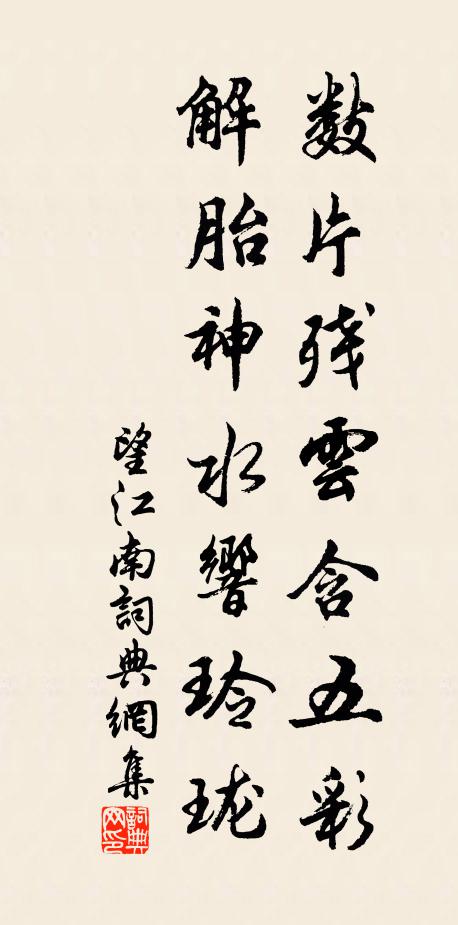 数片残雲含五彩
解胎神水響玲珑
望江南詞典網集
詞典网印